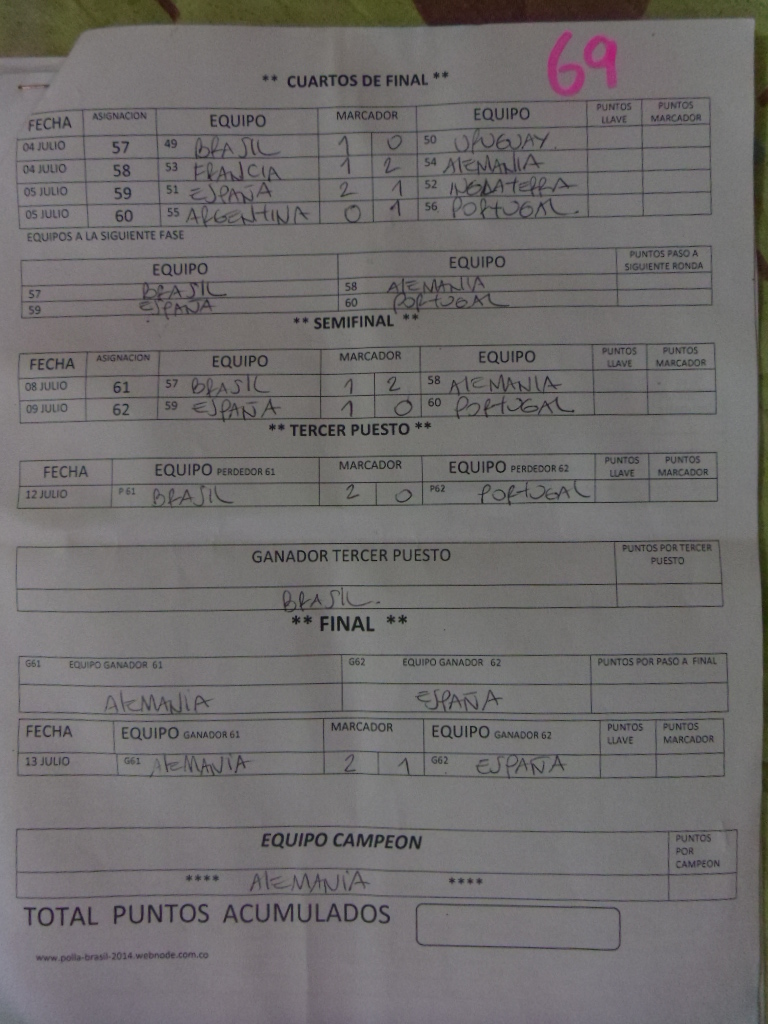 69
** CUARTOS DE FINAL **
FECHA ASIGNACION EQUIPO MARCADOR EQUIPO PUNTOS LLAVE PUNTOS MARCADOR
04 JULIO 57 49 BRASIL 1 0 50 URUGUAY.
04 JULIO 58 53 FRANCIA 1 2 54 ALEMANIA
05 JULIO 59 51 ESPAÑA 2 1 52 INGLATERRA
05 JULIO 60 55 ARGENTINA 0 1 56 PORTUGAL.
EQUIPOS A LA SIGUIENTE FASE
EQUIPO EQUIPO PUNTOS PASO A SIGUIENTE RONDA
57 BRASIL 58 ALEMANIA
59 ESPAÑA 60 PORTUGAL
** SEMIFINAL **
FECHA ASIGNACION EQUIPO MARCADOR EQUIPO PUNTOS LLAVE PUNTOS MARCADOR
08 JULIO 61 57 BRASIL 1 2 58 ALEMANIA
09 JULIO 62 59 ESPAÑA 1 0 60 PORTUGAL
** TERCER PUESTO **
FECHA EQUIPO PERDEDOR 61 MARCADOR EQUIPO PERDEDOR 62 PUNTOS LLAVE PUNTOS MARCADOR
12 JULIO P61 BRASIL 2 0 P62 PORTUGAL
GANADOR TERCER PUESTO PUNTOS POR TERCER PUESTO
BRASIL.
** FINAL **
G61 EQUIPO GANADOR 61 G62 EQUIPO GANADOR 62 PUNTOS POR PASO A FINAL
ALEMANIA ESPAÑA
FECHA EQUIPO GANADOR 61 MARCADOR EQUIPO GANADOR 62 PUNTOS LLAVE PUNTOS MARCADOR
13 JULIO G61 ALEMANIA 2 1 G62 ESPAÑA
EQUIPO CAMPEON PUNTOS POR CAMPEON
**** ALEMANIA ****
TOTAL PUNTOS ACUMULADOS
www.polla-brasil-2014.webnode.com.co